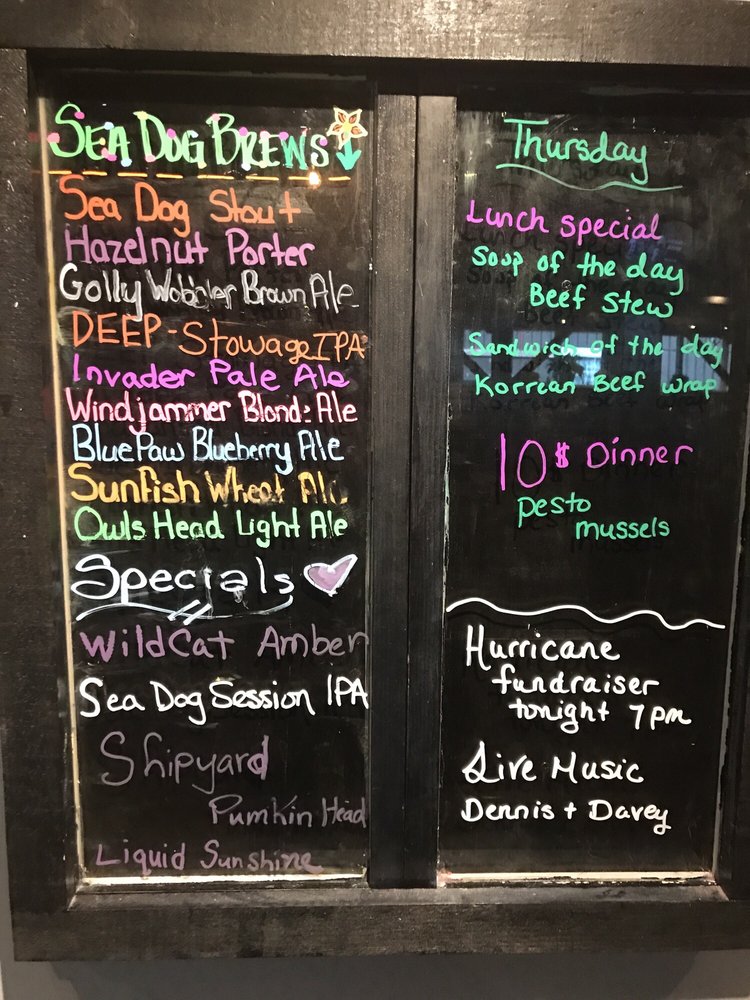 SEA DOG BREWS
Sea Dog Stout
Hazelnut Porter
Golly Wobbler Brown Ale
DEEP-Stowage IPA
Invader Pale Ale
Windjammer Blonde Ale
Blue Paw Blueberry Ale
Sunfish Wheat Ale
Owls Head Light Ale
Specials
WildCat Amber
Sea Dog Session IPA
Shipyard
Pumkin Head
Liquid Sunshine
Thursday
Lunch special
Soup of the day
Beef Stew
Sandwich of the day
Korrean Beef wrap
10$ Dinner
pesto
mussels
Hurricane
fundraiser
tonight 7pm
Live Music
Dennis + Davey